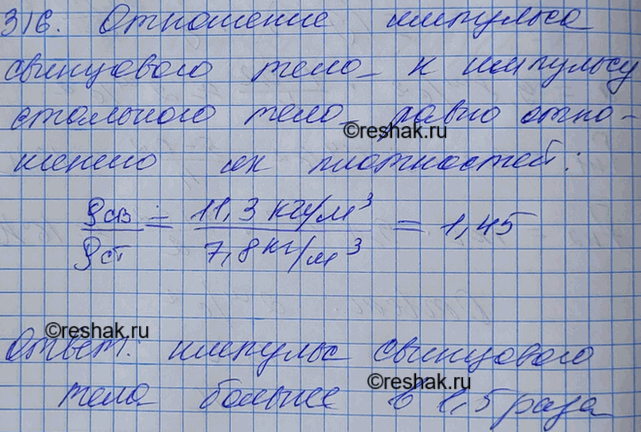 316. Отношение импульса
свинцового тела к импульсу
стального тела равно отно-
шению их плотностей:
©reshak.ru
ρсв/ρст = 11,3 кг/м³ / 7,8 кг/м³ = 1,45
©reshak.ru
Ответ: импульс свинцового
©reshak.ru
тела больше в 1,5 раза